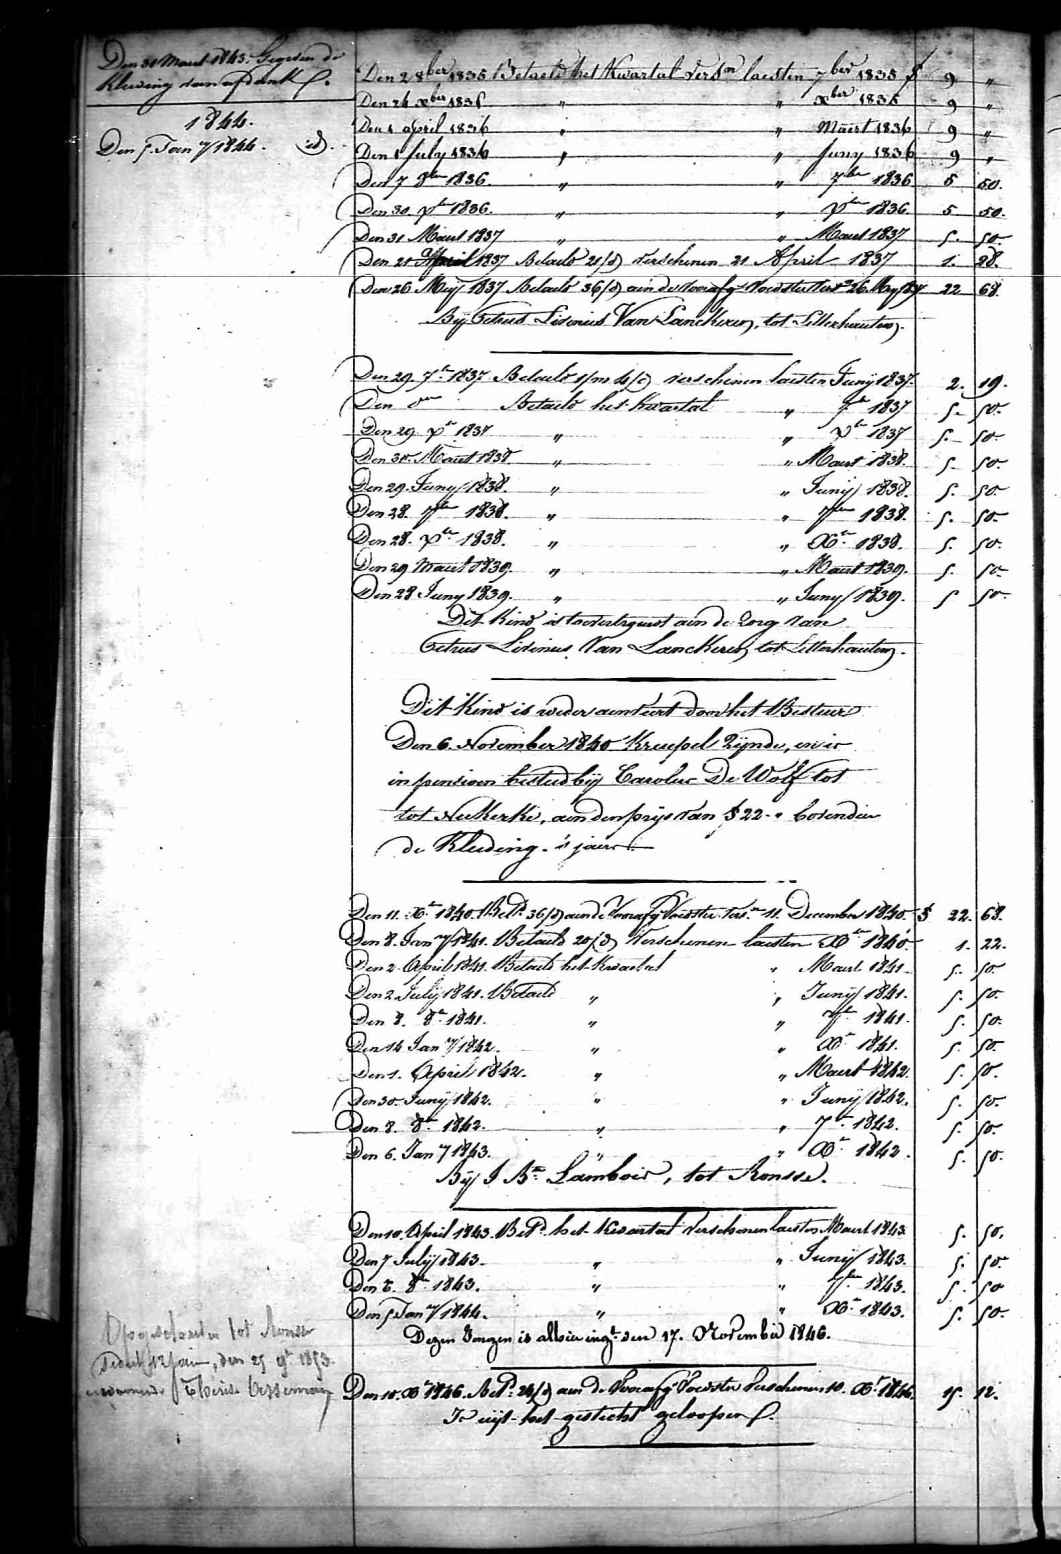 Den 31 Maert 1843. Gegeven de
kleeding van afdank f.
1844.
Den 5. Jan 7/1844. id.
Den 2 8ber 1835 Betaeld het Kwartal versn laesten 7ber 1835 f 9 "
Den 24 xber 1835 " " xber 1835 9 "
Den 1 april 1836 " " Maert 1836 9 "
Den 1 July 1836 " " Juny 1836 9 "
Den 7 8ber 1836. " " 7ber 1836 5 50.
Den 30. xber 1836. " " xber 1836. 5 50.
Den 31 Maert 1837 " " Maert 1837 5. 50.
Den 21 April 1837 Betaeld 21/d) verschenen 21 April 1837 1. 28.
Den 26 Meij 1837 Betaeld 36/d) aen de voorafge Voedster vers 26 Mey 1837 22 68
Bij Petrus Livinus Van Lanckeren, tot Letterhautem.
Den 29. 7er 1837 Betaeld 1/m 4/d) verschenen laesten Junij 1837. 2. 19.
Den do Betaeld het Kwartal " 7er 1837 5. 50.
Den 29 xr 1837 " " xr 1837 5. 50.
Den 31. Maert 1838. " " Maert 1838. 5. 50.
Den 29. Juny 1838. " " Junij 1838. 5. 50.
Den 28. 7ber 1838. " " 7ber 1838. 5. 50.
Den 28. xber 1838. " " Xr 1838. 5. 50.
Den 29 Maert 1839. " " Maert 1839. 5. 50.
Den 28 Juny 1839. " " Juny 1839. 5 50.
Dit Kind is toevertrouwt aen de zorg van
Petrus Livinus Van Lanckeren, tot Letterhautem.
Dit Kind is weder aenveert door het Bestuer
Den 6. November 1840 Kruepel Zijnde, en is
in pensioen besteed bij Carolus De Wolf tot
tot Nukerke, aen den prijs van f 22- " bovendien
de Kleeding. 's jaers.
Den 11. Xr 1840. Betd 36/d) aen de Voorafge Voedster vers. 11 December 1840. f 22. 68.
Den 8. Jan 7/1841. Betaeld 20/d) Verschenen laesten Xr 1840. 1. 22.
Den 2 April 1841. Betaeld het Kwartal " Maert 1841. 5. 50.
Den 2 July 1841. Betaeld " " Junij 1841. 5. 50.
Den 8. 8r 1841. " " 7r 1841. 5. 50.
Den 14 Jan 7/1842. " " Xr 1841. 5. 50.
Den 1. April 1842. " " Maert 1842. 5. 50.
Den 30. Junij 1842. " " Junij 1842. 5. 50.
Den 8. 8r 1842. " " 7r 1842. 5. 50.
Den 6. Jan 7 1843. " " Xr 1842. 5. 50.
Bij J Bte Lamboir, tot Ronsse.
Den 10. April 1843. Betd het Kwartal verschenen laesten Maert 1843 5. 50.
Den 7 Julij 1843. " " Junij 1843. 5. 50.
Den 6. 8r 1843. " " 7ber 1843. 5. 50
Den 5 Jan 7/1844. " " Xr 1843. 5. 50.
Dezen Jongen is alhier ingt. den 17. November 1846.
tot Ronsse
den 25 9r 1853.
Den 10. Xr 1846. Betd 24/d) aen de Voorafge Voedster verschenen 10. Xr 1846. 15. 12.
Is uijt het gesticht geloopen f.